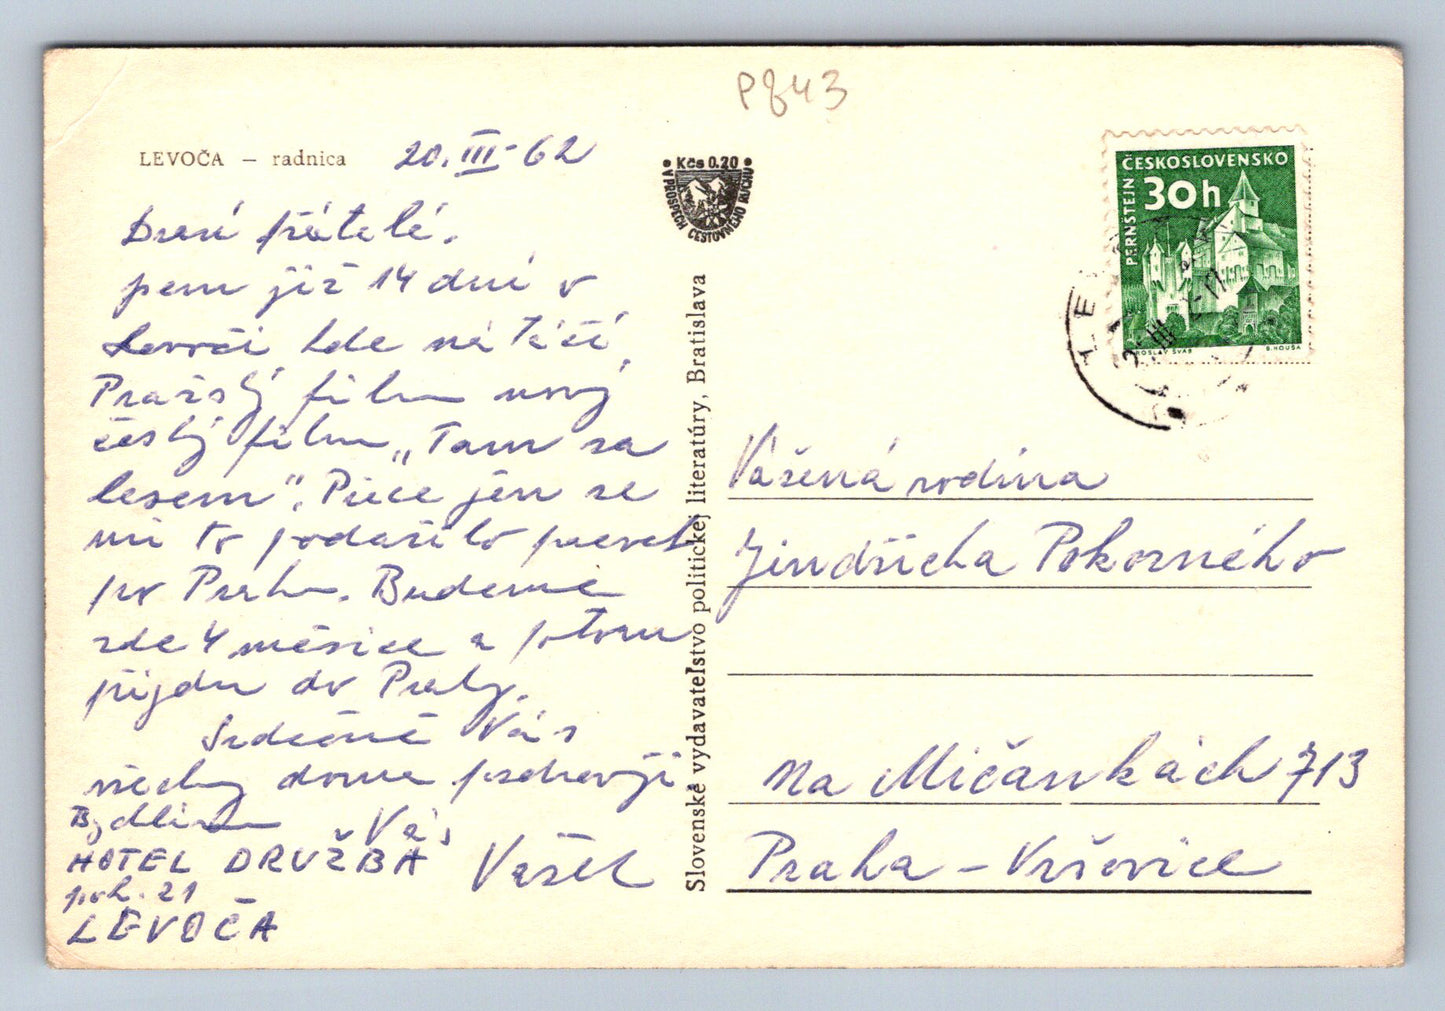 P843
LEVOČA – radnica
20. III - 62
Kčs 0.20
V PROSPECH CESTOVNÉHO RUCHU
ČESKOSLOVENSKO
30h
PERNŠTEJN
JAROSLAV ŠVÁB
B. HOUSA
Drazí přátelé,
jsem již 14 dní v
Levoči kde natáčí
Pražský film nový
český film „Tam za
lesem". Přece jen se
mi to podařilo
Prahu. Budeme
zde 4 měsíce a potom
přijdu do Prahy.
Srdečně Vás
všechny doma pozdravuji
Bydlím Váš
HOTEL DRUŽBA Vašek
pok. 21
LEVOČA
Slovenské vydavateľstvo politickej literatúry, Bratislava
Vážená rodina
Jindřicha Pokorného
Na Mičánkách 713
Praha – Vršovice